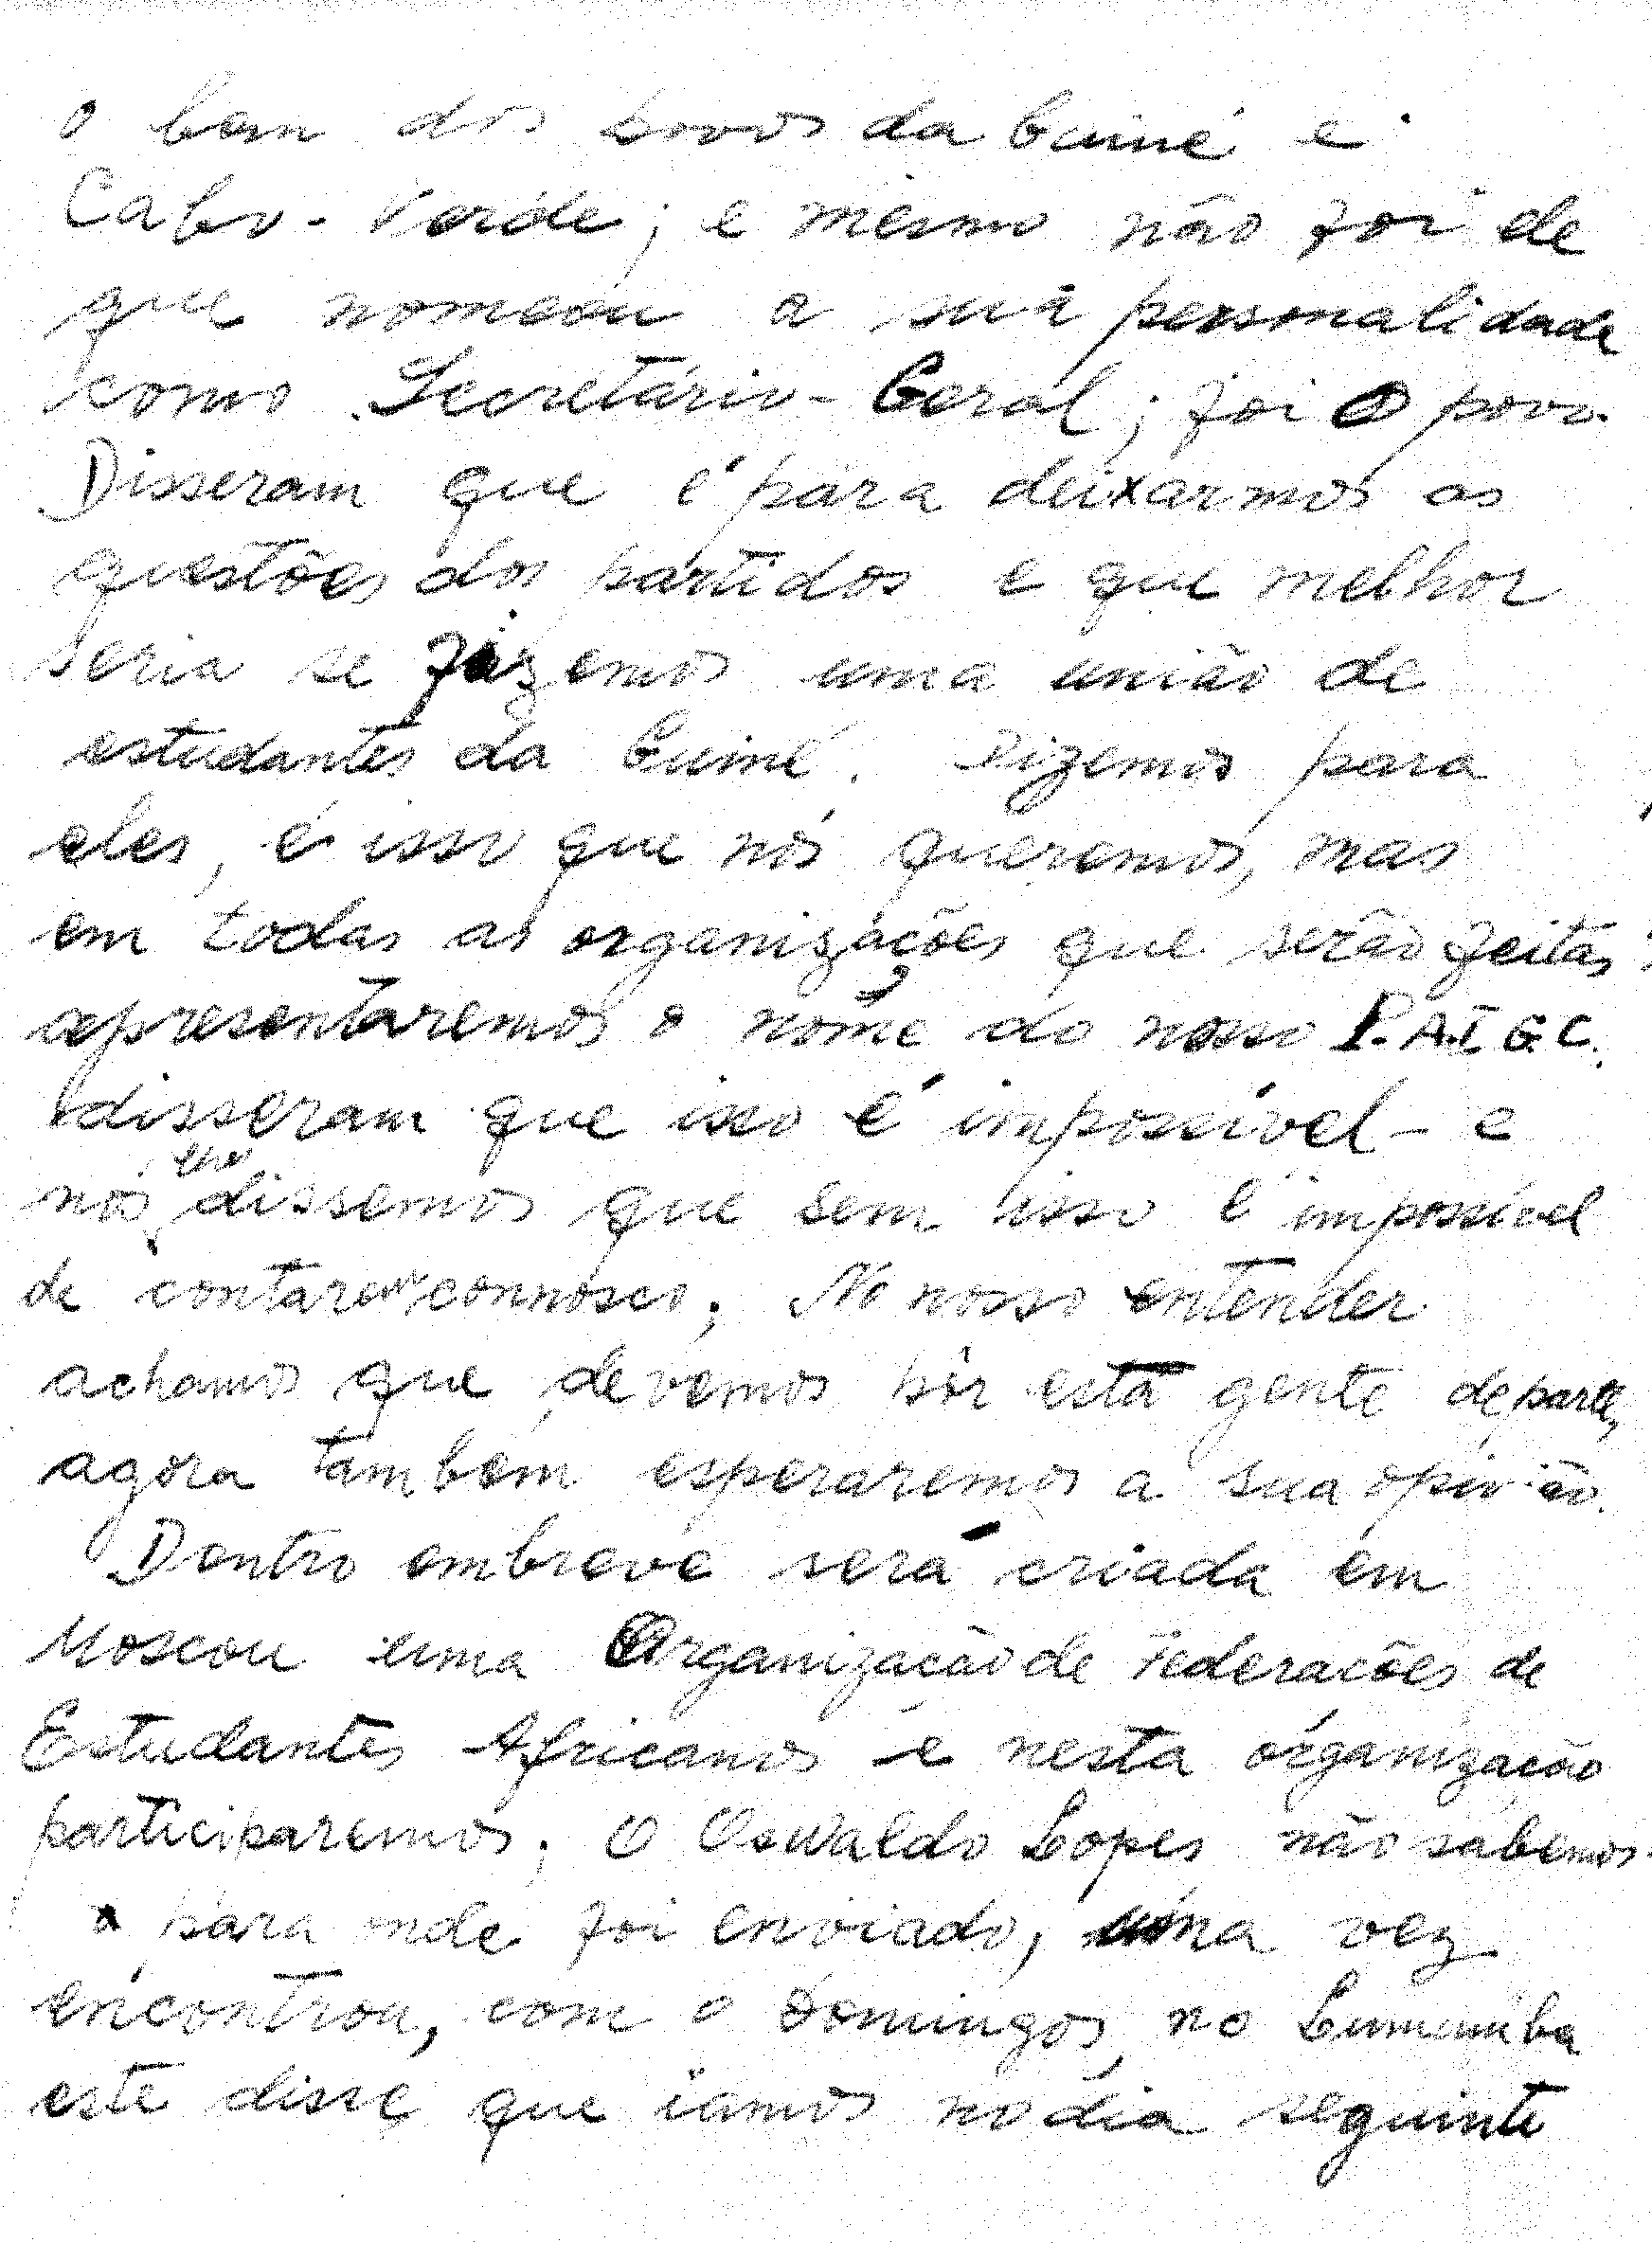 o bem dos povos da Guiné e
Cabo-Verde; e mesmo não foi ele
que nomeou a sua personalidade
como Secretário-Geral; foi o povo.
Disseram que é para deixarmos as
questões dos partidos e que melhor
seria se fizemos uma união de
estudantes da Guiné. Dizemos para
eles, é isso que nós queremos, mas
em todas as organizações que serão feitas
apresentaremos o nome do nosso P.A.I.G.C.
disseram que isso é impossível - e
nós dissemos que sem isso é impossível
de contarem connosco. No nosso entender
achamos que devemos pôr esta gente departe,
agora também esperaremos a sua opinião.
Dentro embreve será criada em
Moscou uma Organização de Federações de
Estudantes Africanos e nesta organização
participaremos. O Oswaldo Lopes não sabemos
para onde foi enviado, uma vez
encontrou, com o Domingos no Lumumba
este disse que iamos no dia seguinte